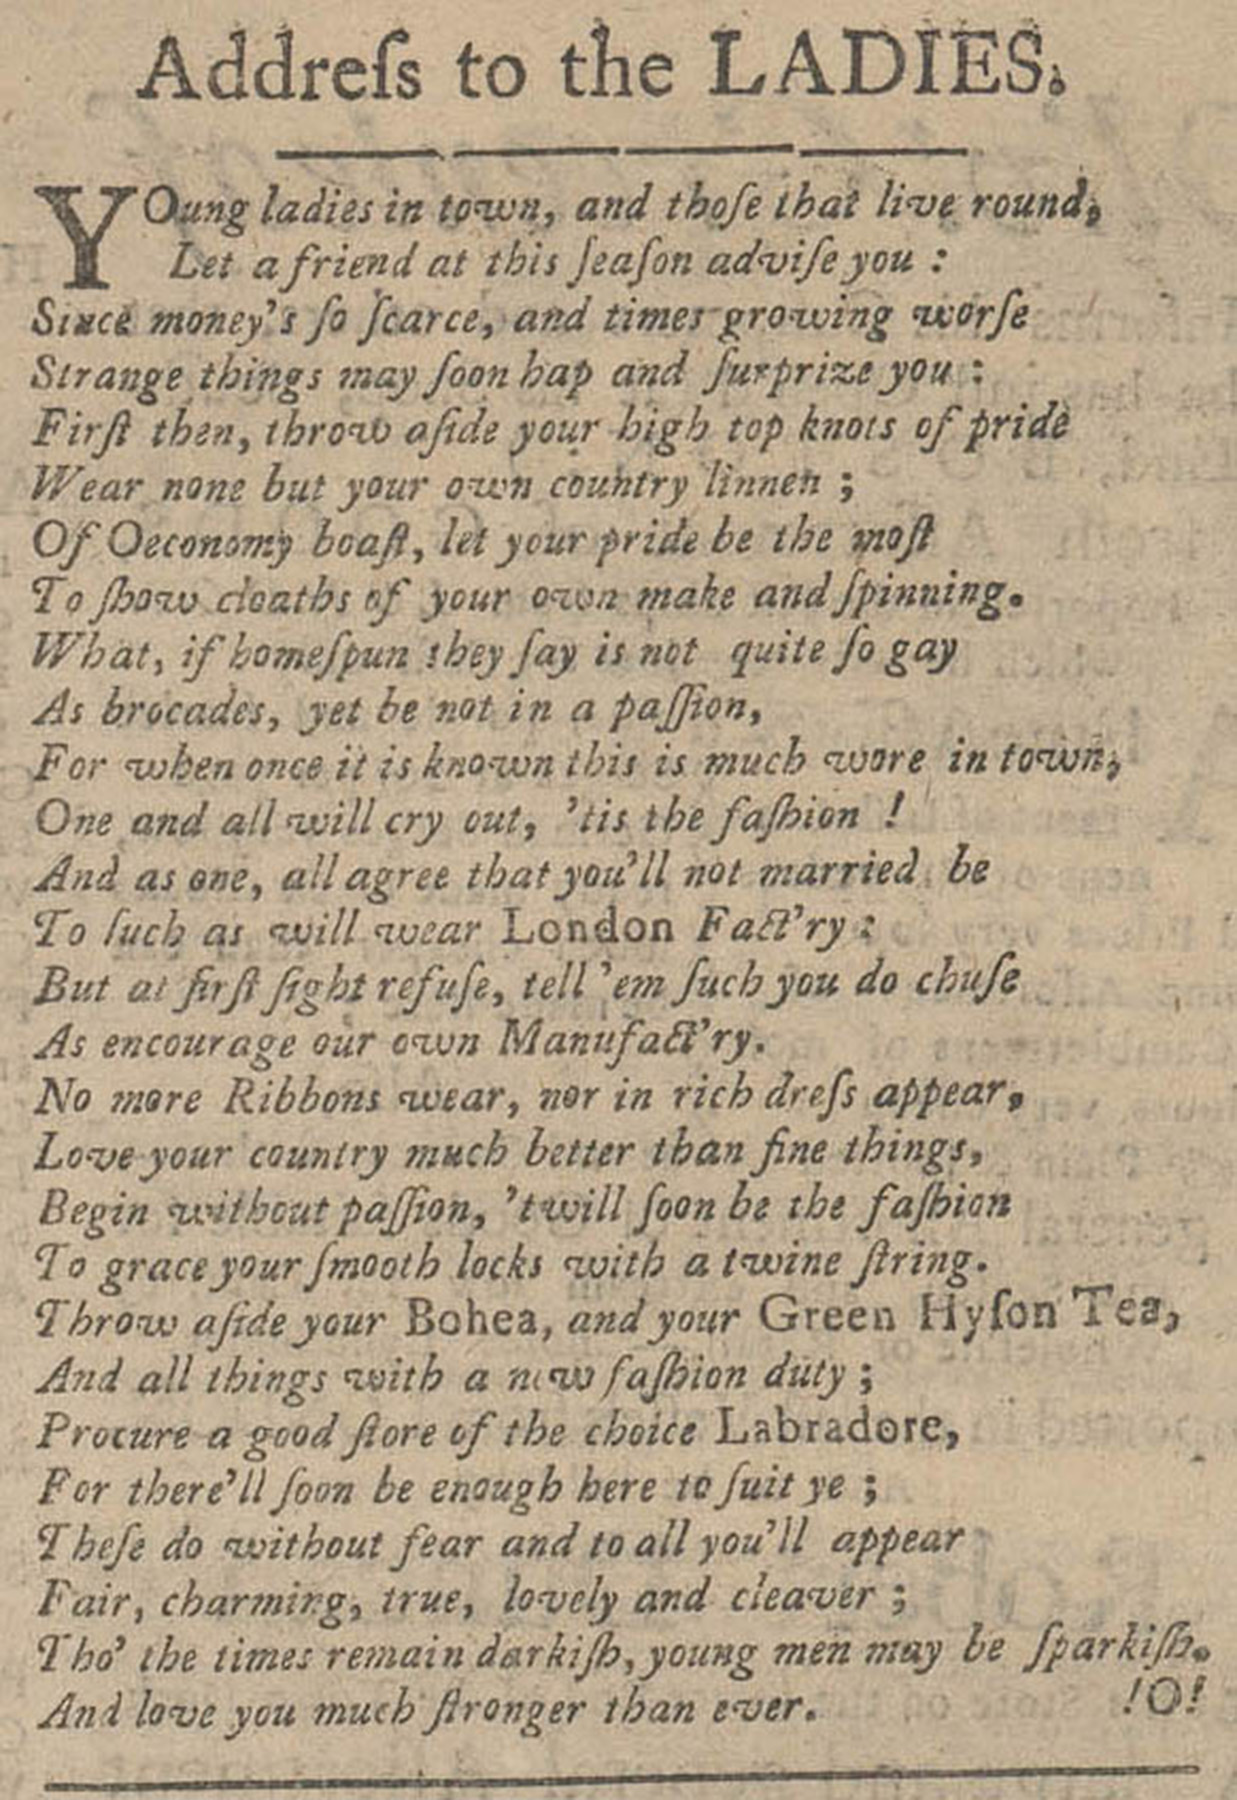 Addreſs to the LADIES.
YOung ladies in town, and thoſe that live round,
Let a friend at this ſeaſon adviſe you :
Since money's ſo ſcarce, and times growing worſe
Strange things may ſoon hap and ſurprize you :
Firſt then, throw aſide your high top knots of pride
Wear none but your own country linnen ;
Of Oeconomy boaſt, let your pride be the moſt
To ſhow cloaths of your own make and ſpinning.
What, if homeſpun they ſay is not quite ſo gay
As brocades, yet be not in a paſſion,
For when once it is known this is much wore in town,
One and all will cry out, 'tis the faſhion !
And as one, all agree that you'll not married be
To ſuch as will wear London Fact'ry :
But at firſt ſight refuſe, tell 'em ſuch you do chuſe
As encourage our own Manufact'ry.
No more Ribbons wear, nor in rich dreſs appear,
Love your country much better than fine things,
Begin without paſſion, 'twill ſoon be the faſhion
To grace your ſmooth locks with a twine ſtring.
Throw aſide your Bohea, and your Green Hyſon Tea,
And all things with a new faſhion duty ;
Procure a good ſtore of the choice Labradore,
For there'll ſoon be enough here to ſuit ye ;
Theſe do without fear and to all you'll appear
Fair, charming, true, lovely and cleaver ;
Tho' the times remain darkiſh, young men may be ſparkiſh.
And love you much ſtronger than ever. !O!